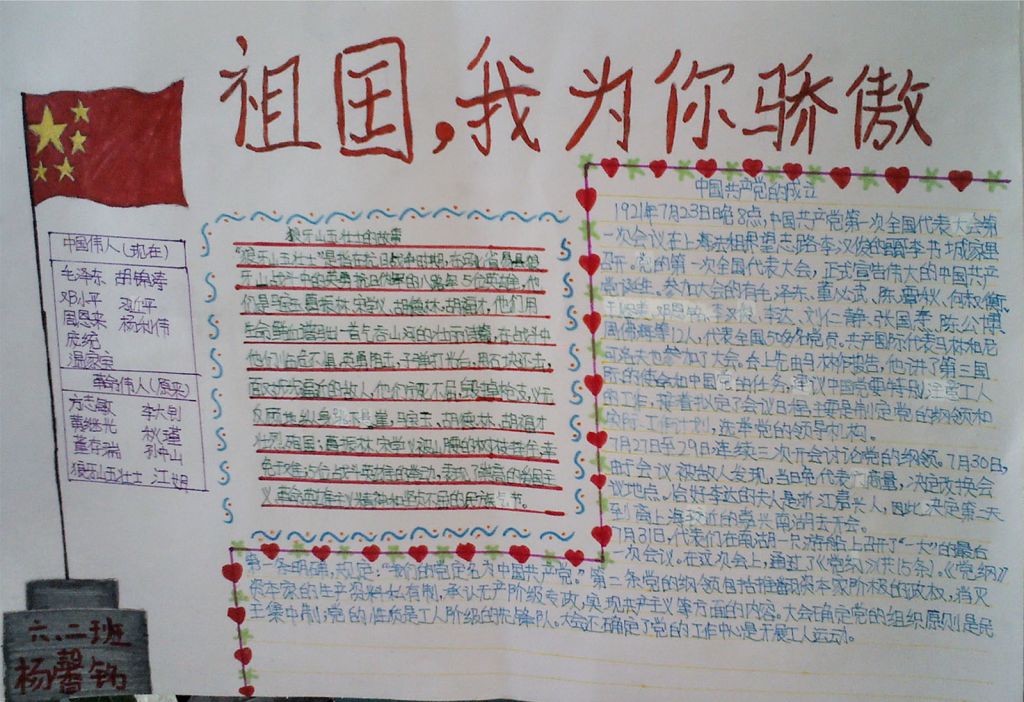 祖国,我为你骄傲
中国伟人(现在)
毛泽东 胡锦涛
邓小平 习近平
周恩来 杨利伟
庞统
温家宝
革命伟人(原来)
方志敏 李大钊
黄继光 秋瑾
董存瑞 孙中山
狼牙山五壮士 江姐
六.二班
杨馨钠
狼牙山五壮士的故事
"狼牙山五壮士"是指在抗日战争时期,在河北省易县狼
牙山战斗中的英勇抗击的八路军5位英雄,他
们是马宝玉、葛振林、宋学义、胡德林、胡福才,他们用
生命和鲜血谱写出一首气吞山河的壮丽诗篇,在战斗中
他们临危不惧,英勇阻击,子弹打光后,用石块还击,
面对步步逼近的敌人,他们宁死不屈,毁掉枪支,义无
反顾地纵身跳下悬崖,马宝玉、胡德林、胡福才
壮烈殉国;葛振林、宋学义被山腰的树枝挂住,幸
免于难,五位战斗英雄的壮举,表现了崇高的爱国主
义、革命英雄主义精神和坚贞不屈的民族气节。
中国共产党的成立
1921年7月23日晚8点,中国共产党第一次全国代表大会第
一次会议在上海法租界望志路李汉俊的哥哥李书城家里
召开。党的第一次全国代表大会,正式宣告伟大的中国共产
党诞生,参加大会的有毛泽东、董必武、陈潭秋、何叔衡、
李汉俊,李达,刘仁静,张国焘,陈公博
周佛海等12人,代表全国50多名党员。共产国际代表马林和尼
可洛夫也参加了大会。会上先由马林作报告,他讲了第三国
际的使命和中国党的任务,建议中国党要特别注意工人
的工作,接着拟定了会议日程,主要是制定党的纲领和
实际工作计划,选举党的领导机构。
7月27日至29日连续三次开会讨论党的纲领。7月30日,
由于会议被敌人发现,当日晚代表们商量,决定改换会
议地点。恰好李达的夫人是浙江嘉兴人,因此,决定第二天
到离上海较近的嘉兴南湖去开会。
7月31日,代表们在南湖一只游船上召开了"一大"的最后
一次会议。在这次会上,通过了《党纲》(共15条)。《党纲》
第一条明确,规定:"我们的党定名为中国共产党。"第二条党的纲领包括推翻资本家阶级的政权,消灭
资本家的生产资料私有制,承认无产阶级专政,实现共产主义等方面的内容。大会确定党的组织原则是民
主集中制;党的性质是工人阶级的先锋队。大会还确定了党的工作中心是开展工人运动。